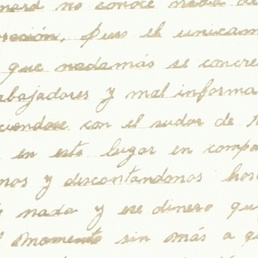 no conoce nada de
Pero él únicam
que nadamás se concre
abajadores y mal informa
ciendose con el sudor de n
en este lugar en compa
nos y descontandonos hos
nada y ese dinero qu
el momento sin más a q